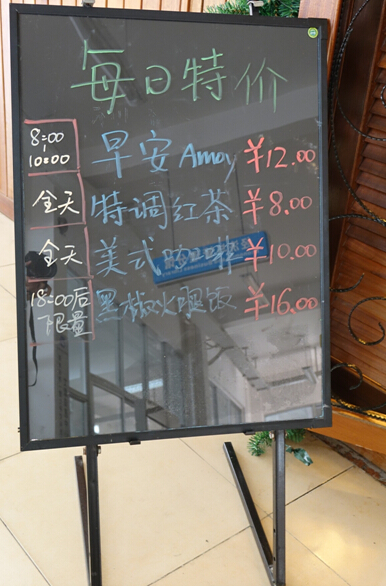 每日特价
8:00
|
10:00 早安Amoy ¥12.00
全天 特调红茶 ¥8.00
全天 美式咖啡 ¥10.00
18:00后
限量 黑椒火腿饭 ¥16.00